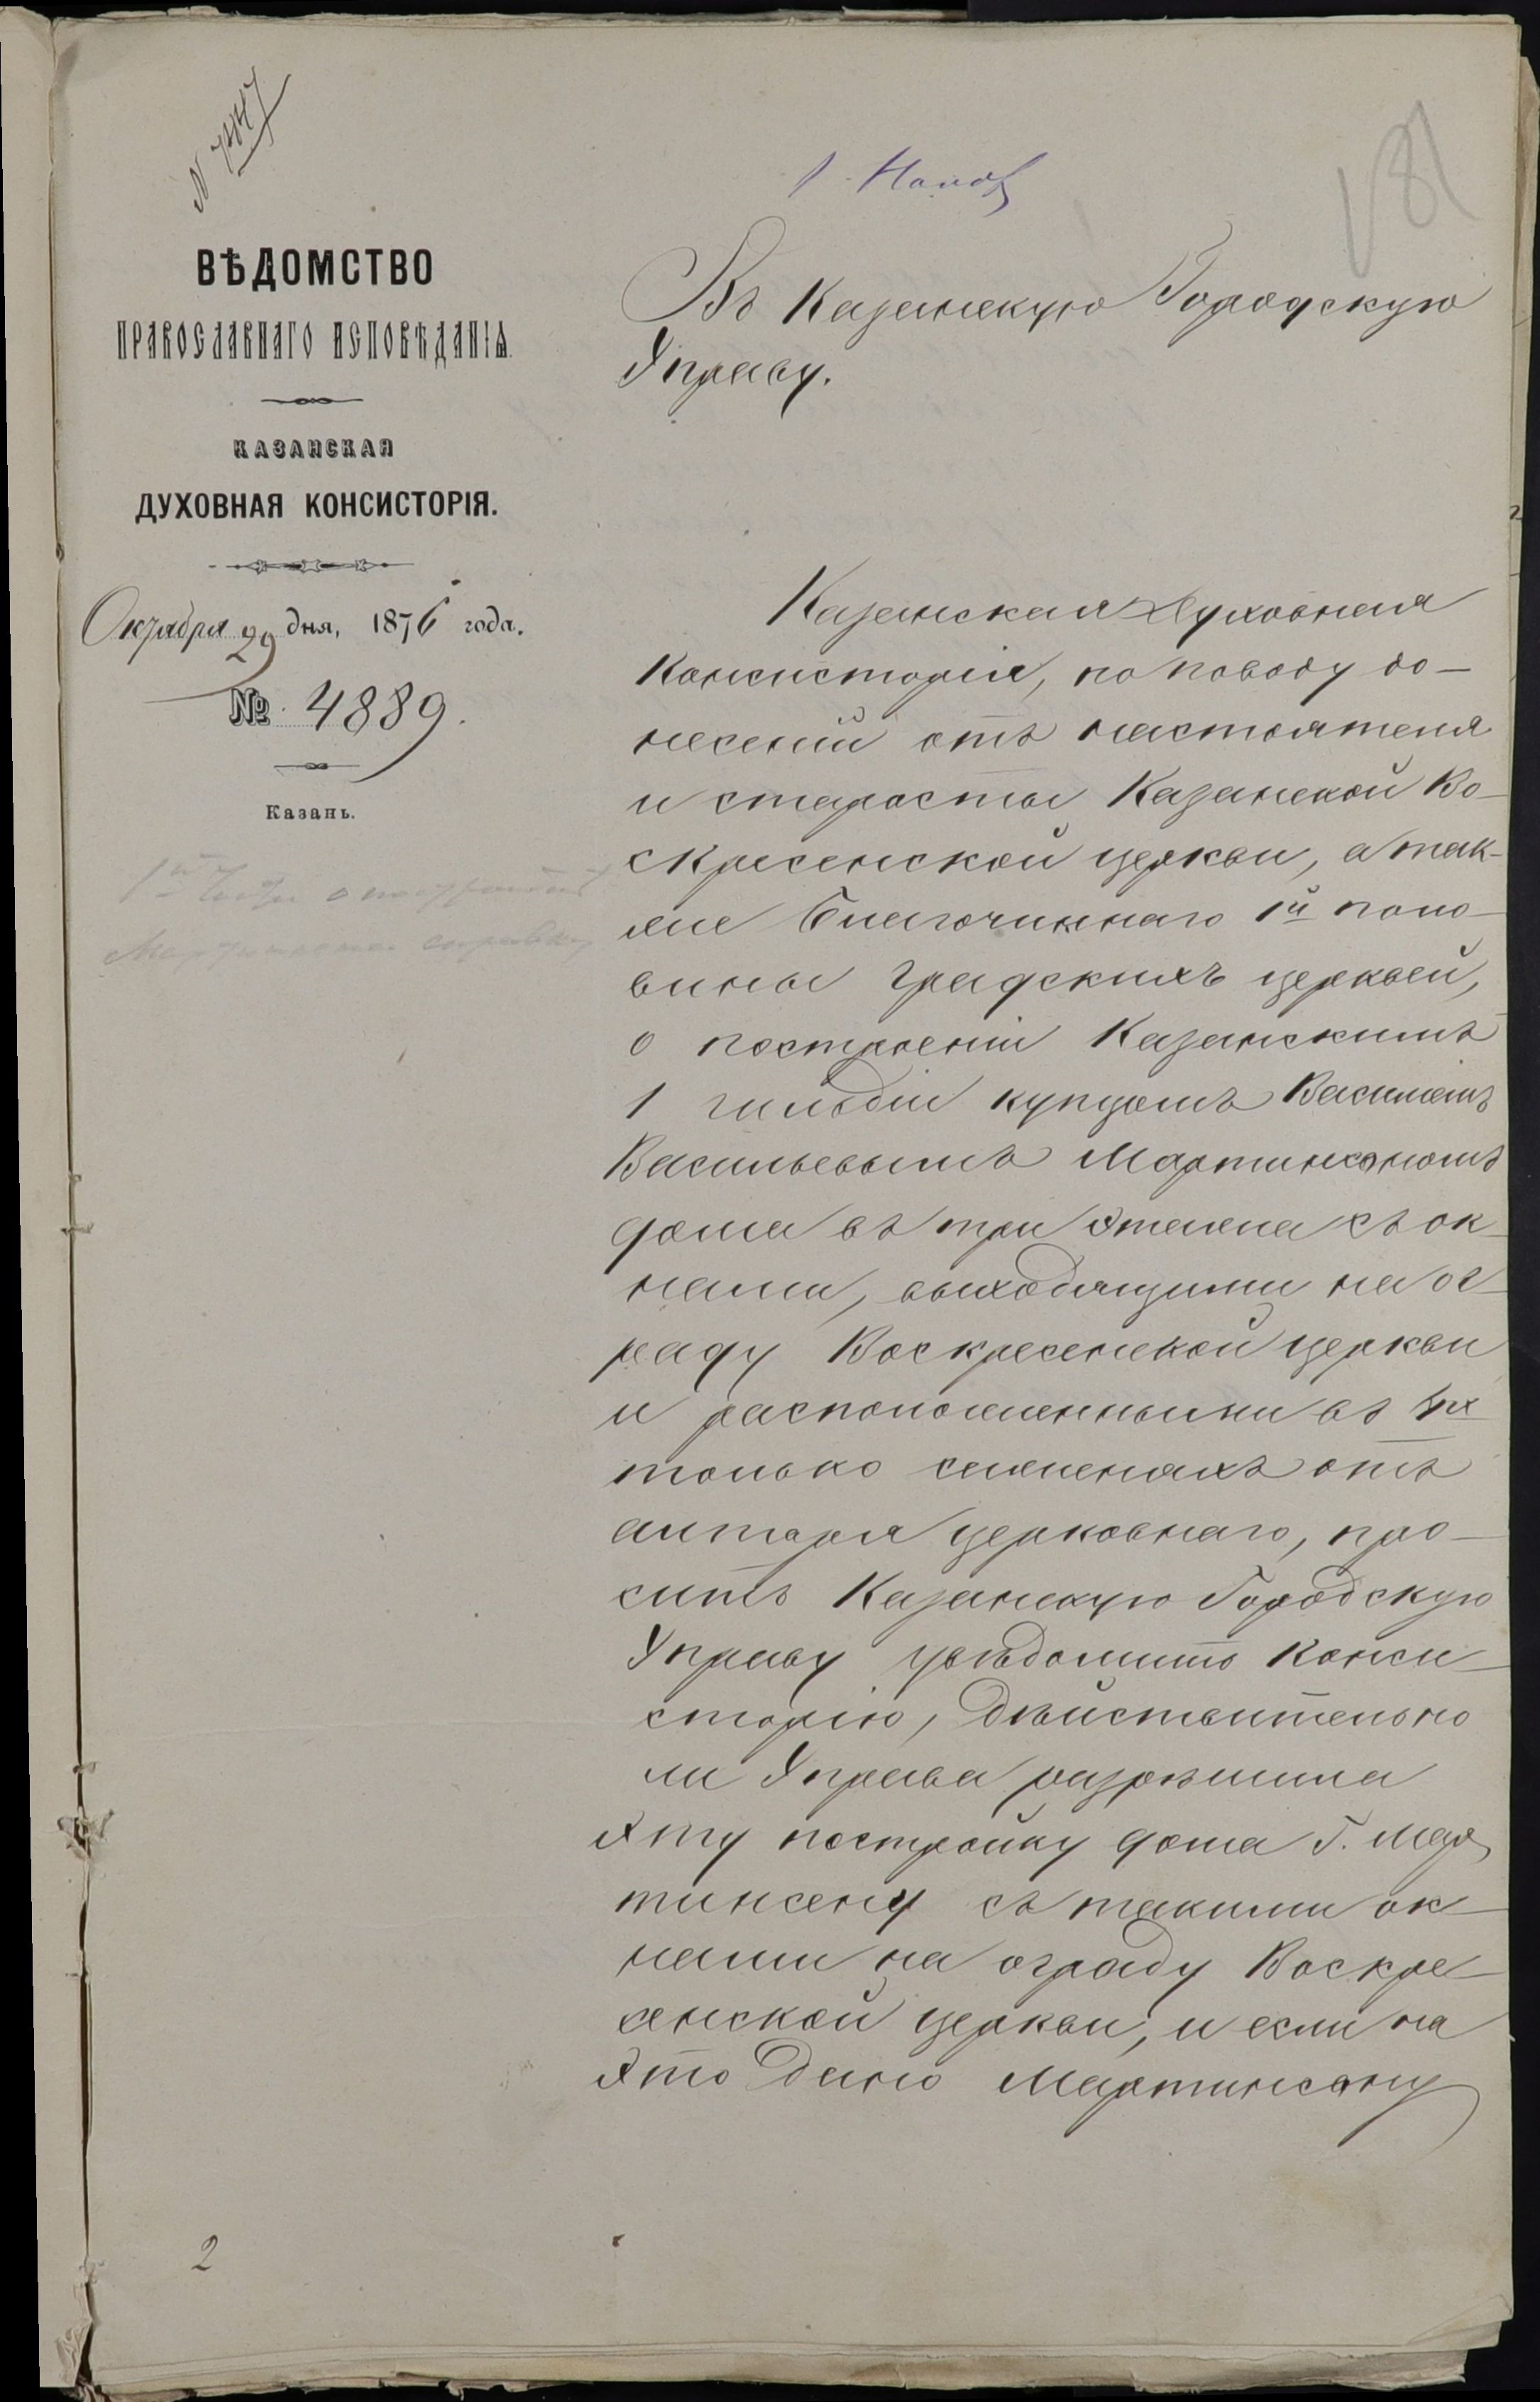 № 7447
1 Нояб
81
ВѢДОМСТВО
ПРАВОСЛАВНАГО ИСПОВѢДАНІЯ.
КАЗАНСКАЯ
ДУХОВНАЯ КОНСИСТОРІЯ.
Октября 29 дня, 1876 года.
№ 4889.
Казань.
Въ Казанскую Городскую
Управу.
Казанская Духовная
Консисторія, по поводу до-
несеній отъ настоятеля
и старосты Казанской Во-
скресенской церкви, а так-
же Благочиннаго 1й поло-
вины градскихъ церквей,
о построеніи Казанскимъ
1 гильдіи купцомъ Василіемъ
Васильевымъ Мартинсономъ
дома въ три этажа съ ок-
нами, выходящими на ог-
раду Воскресенской церкви
и расположенными въ 4хъ
только саженяхъ отъ
алтаря церковнаго, про-
ситъ Казанскую Городскую
Управу увѣдомить Конси-
сторію, дѣйствительно
ли Управа разрѣшила
эту постройку дома Г. Мар-
тинсену съ такими ок-
нами на ограду Воскре-
сенской церкви, и если на
это дано Мартинсону
2